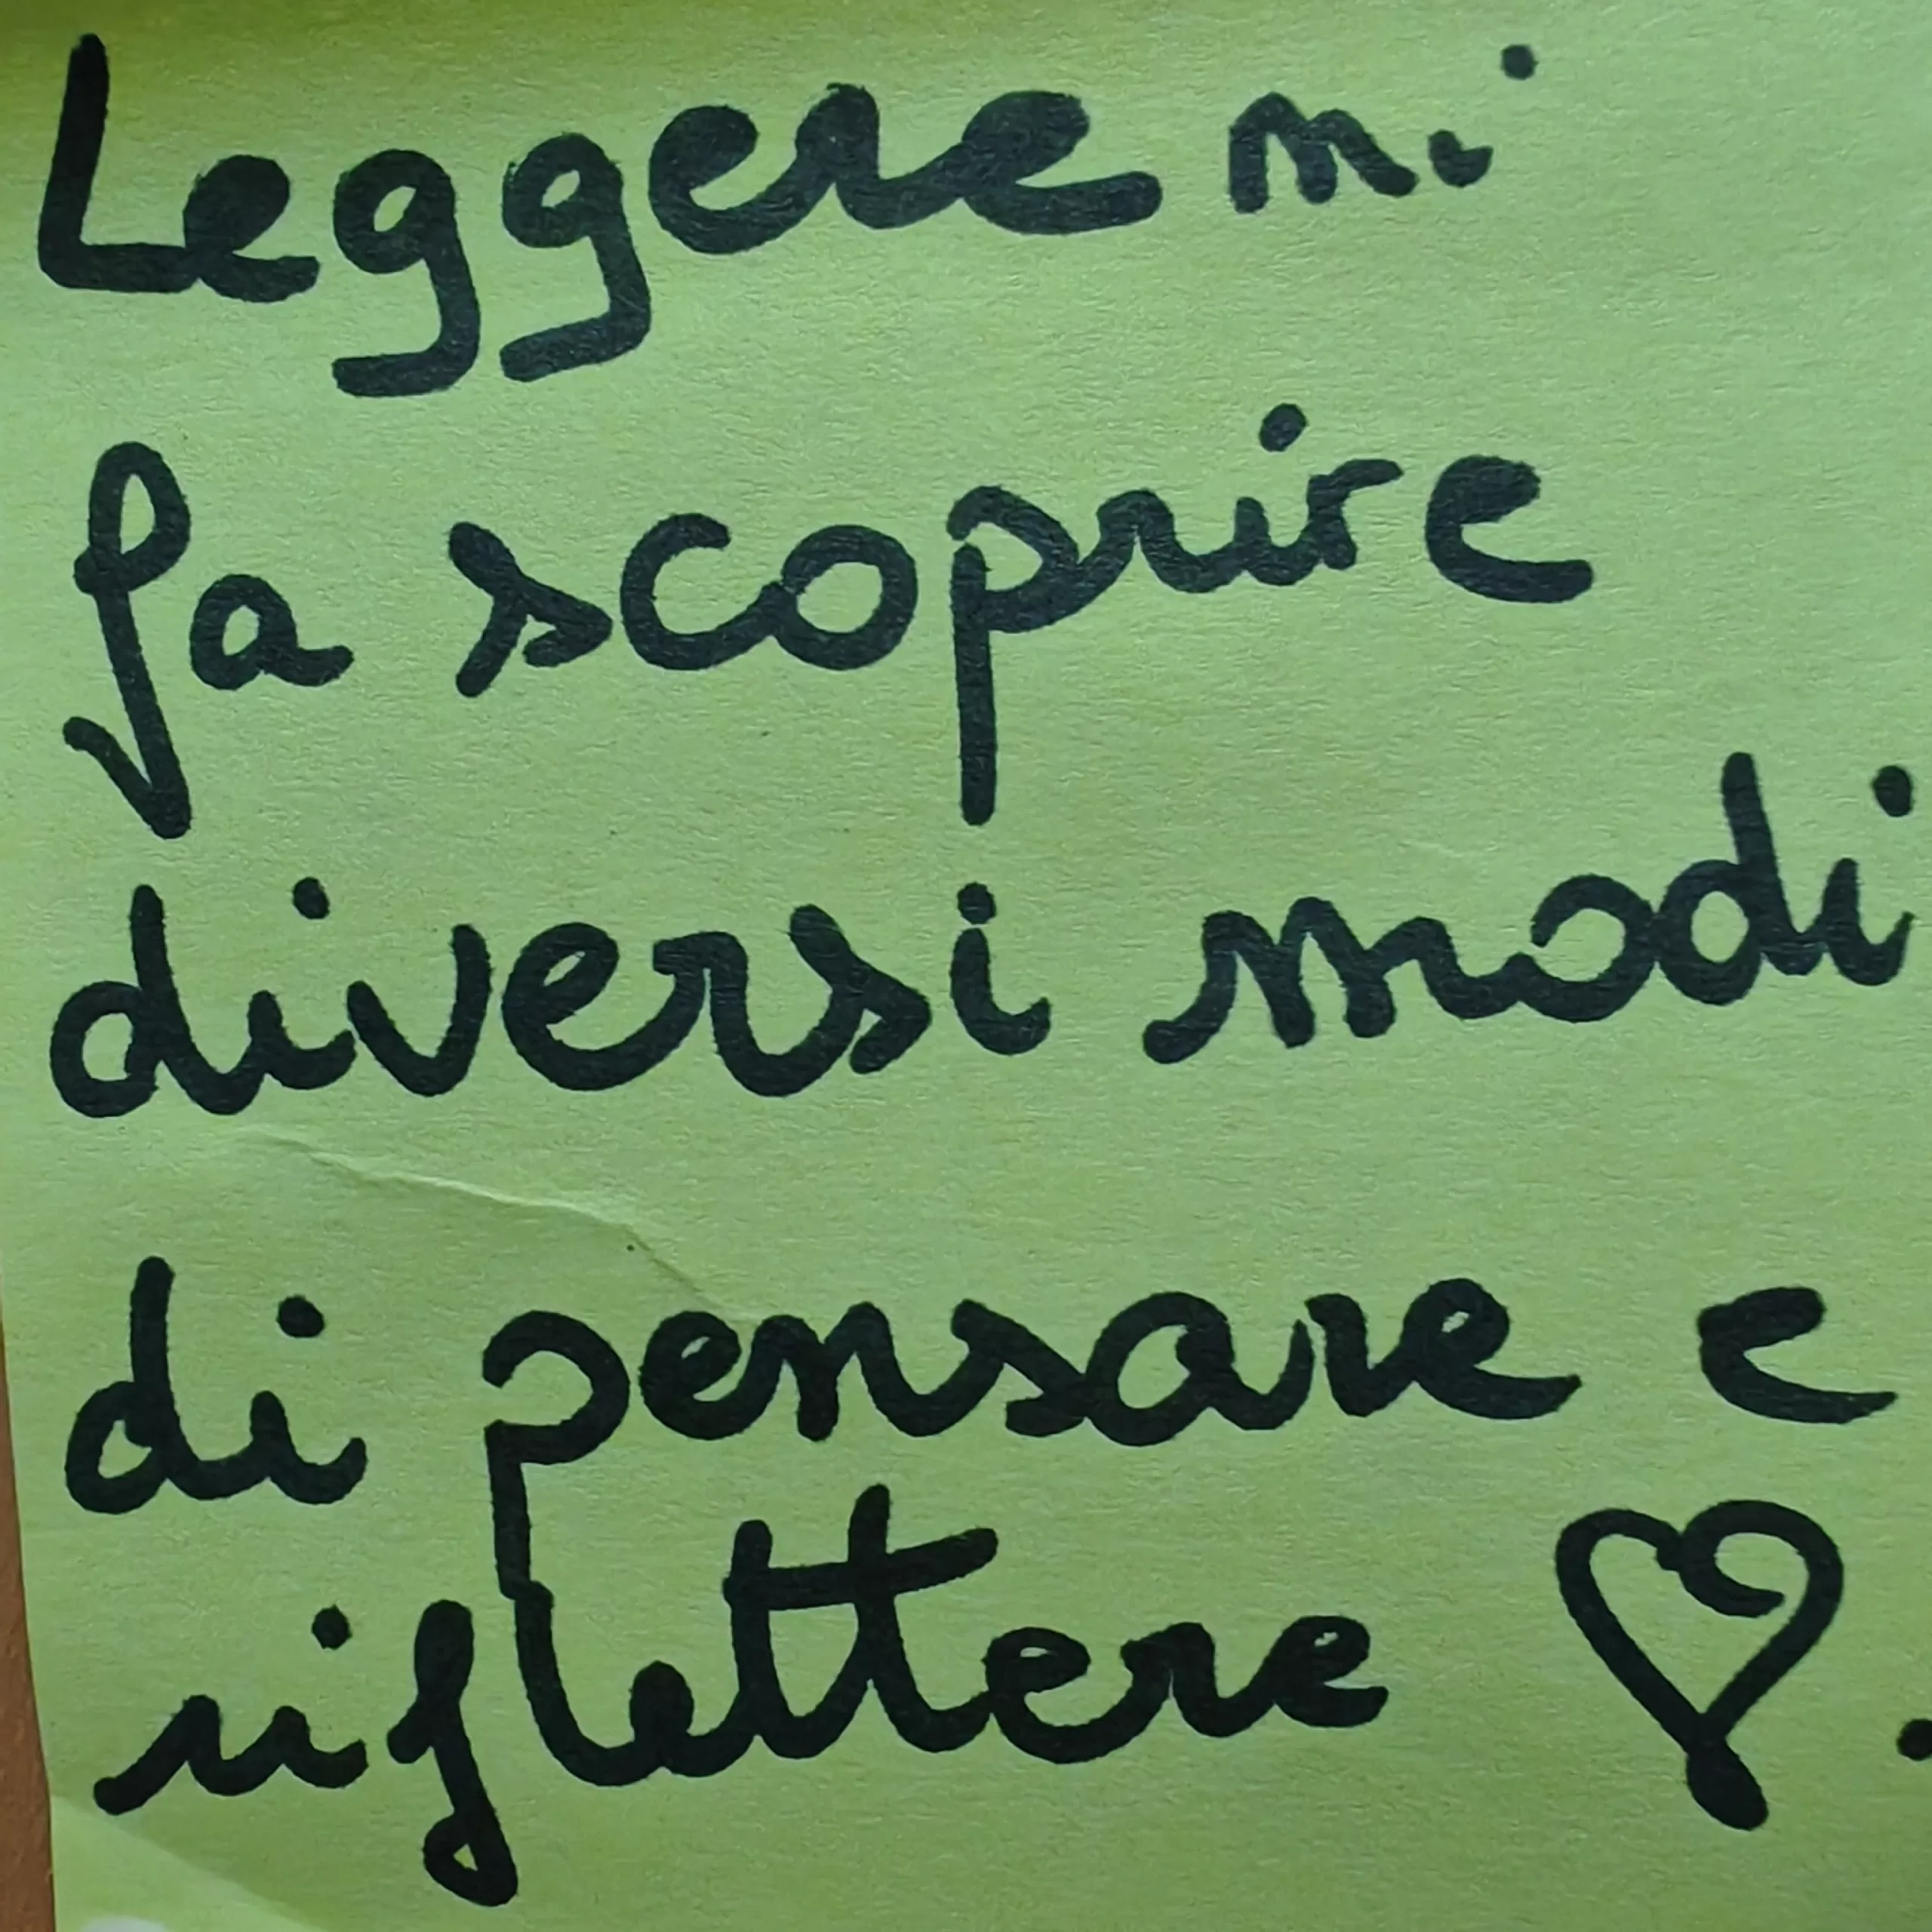 Leggere mi
fa scoprire
diversi modi
di pensare e
riflettere ♡.